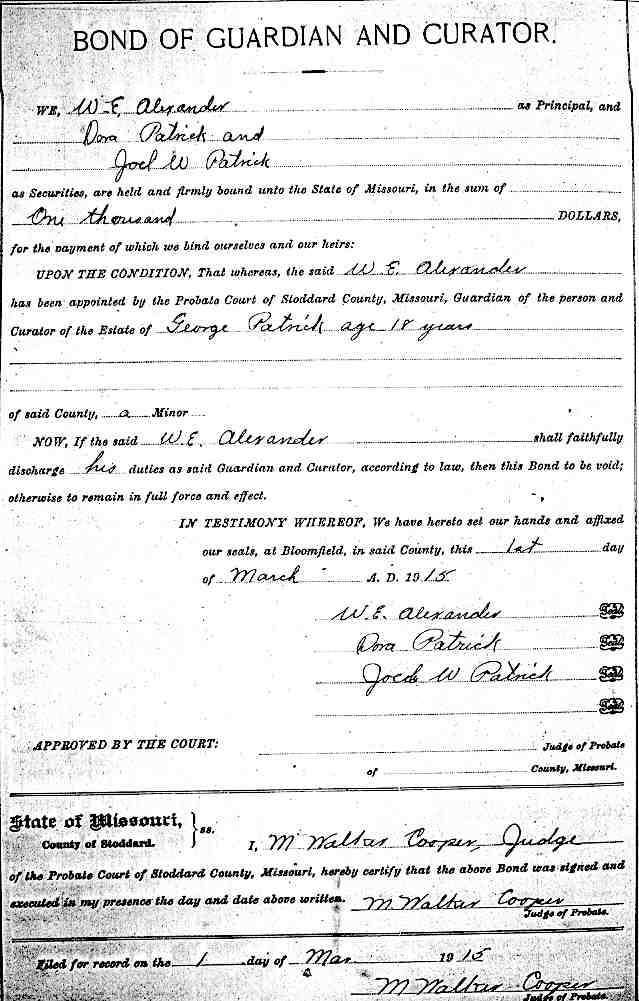 BOND OF GUARDIAN AND CURATOR.
WE, W. E. Alexander as Principal, and
Dora Patrick and
Joel W Patrick
as Securities, are held and firmly bound unto the State of Missouri, in the sum of
One thousand DOLLARS,
for the payment of which we bind ourselves and our heirs:
UPON THE CONDITION, That whereas, the said W. E. Alexander
has been appointed by the Probate Court of Stoddard County, Missouri, Guardian of the person and
Curator of the Estate of George Patrick age 18 years
of said County, a Minor
NOW, If the said W.E. Alexander shall faithfully
discharge his duties as said Guardian and Curator, according to law, then this Bond to be void;
otherwise to remain in full force and effect.
IN TESTIMONY WHEREOF, We have hereto set our hands and affixed
our seals, at Bloomfield, in said County, this 1st day
of March A. D. 1915
W.E. Alexander Seal
Dora Patrick Seal
Joel W Patrick Seal
Seal
APPROVED BY THE COURT: Judge of Probate
of County, Missouri.
State of Missouri,
County of Stoddard. } ss.
I, M Walker Cooper, Judge
of the Probate Court of Stoddard County, Missouri, hereby certify that the above Bond was signed and
executed in my presence the day and date above written. M Walker Cooper
Judge of Probate.
Filed for record on the 1 day of Mar 1915
M Walker Cooper
Judge of Probate.